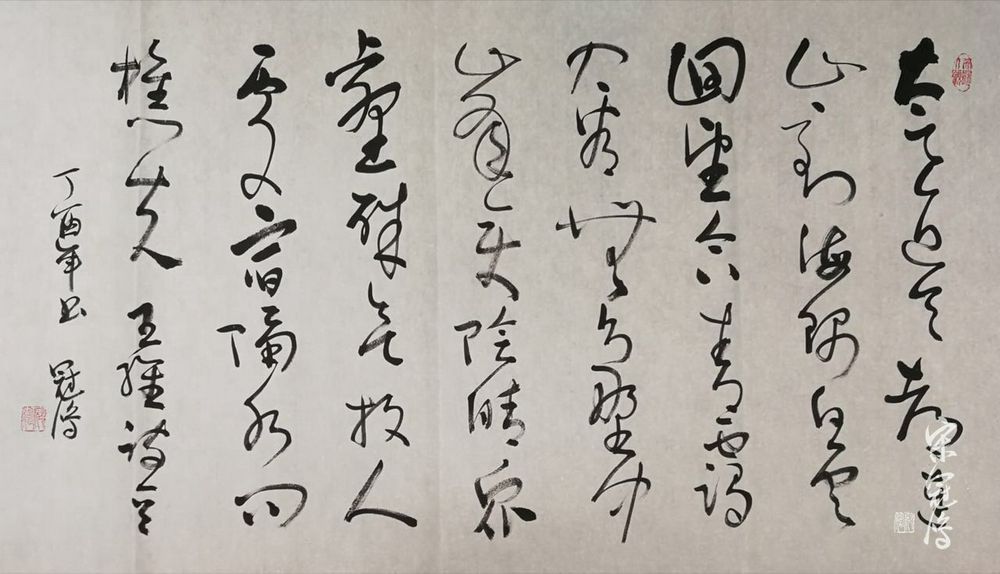 太乙近天都連
山到海隅白雲
回望合青靄
入看無分野中
峯變陰晴衆
壑殊欲投人
處宿隔水問
樵夫 王維詩一首
丁酉年书 冠
宋冠